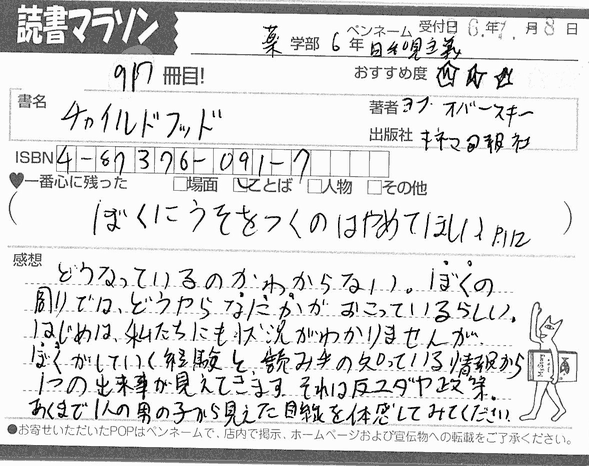 読書マラソン
受付日 6.年1.月8日
薬学部 6年 ペンネーム 日和見主義
917冊目!
おすすめ度 ☆☆☆
書名 チャイルドフッド
著者 ヨナ オバースキー
出版社 キネマ旬報社
ISBN 4-87376-091-7
♥一番心に残った □場面 ☑ことば □人物 □その他
(ぼくにうそをつくのはやめてほしい P.112)
感想
どうなっているのかわからない。ぼくの
周りでは、どうやらなにかがおこっているらしい。
はじめは、私たちにも状況がわかりませんが
ぼくがしていく経験と、読み手の知っている情報から
1つの出来事が見えてきます。それは反ユダヤ政策。
あくまで1人の男の子から見えた目線を体感してみてください。
●お寄せいただいたPOPはペンネームで、店内で掲示、ホームページおよび宣伝物への転載をご了承ください。